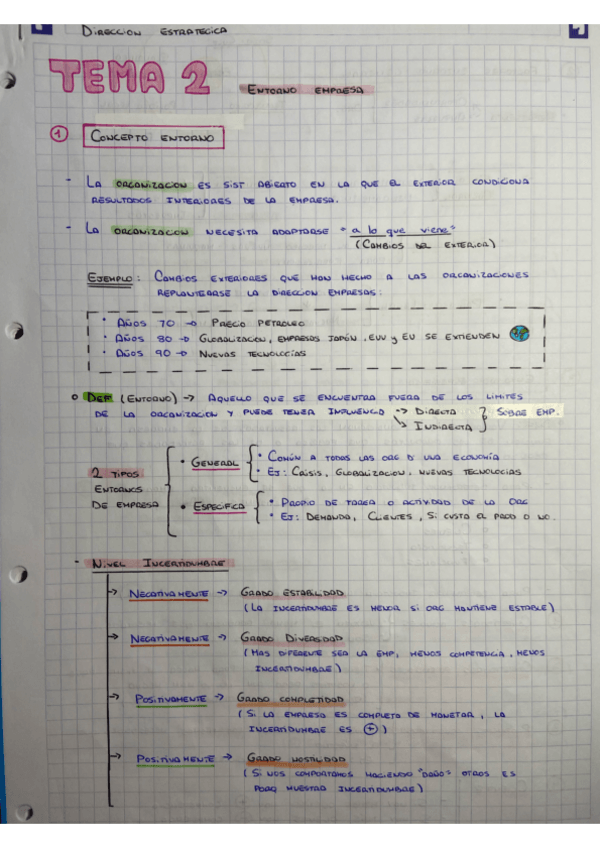 DIRECCION ESTRATEGICA
TEMA 2 ENTORNO EMPRESA
1 CONCEPTO ENTORNO
- LA ORGANIZACION ES SIST ABIERTO EN LA QUE EL EXTERIOR CONDICIONA
RESULTADOS INTERIORES DE LA EMPRESA.
- LA ORGANIZACION NECESITA ADAPTARSE "a lo que viene"
(CAMBIOS DEL EXTERIOR)
EJEMPLO: CAMBIOS EXTERIORES QUE HAN HECHO A LAS ORGANIZACIONES
REPLANTEARSE LA DIRECCION EMPRESAS:
• AÑOS 70 → PRECIO PETROLEO
• AÑOS 80 → GLOBALIZACION, EMPRESAS JAPÓN, EUU y EU SE EXTIENDEN
• AÑOS 90 → NUEVAS TECNOLOGIAS
o DEF (ENTORNO) → AQUELLO QUE SE ENCUENTRA FUERA DE LOS LIMITES
DE LA ORGANIZACION Y PUEDE TENER INFLUENCIA → DIRECTA } SOBRE EMP.
↘ INDIRECTA
2 TIPOS
ENTORNOS
DE EMPRESA
• GENERAL
• COMÚN A TODAS LAS ORG D UNA ECONOMÍA
• EJ: CRISIS, GLOBALIZACION, NUEVAS TECNOLOGIAS
• ESPECIFICO
• PROPIO DE TAREA O ACTIVIDAD DE LA ORG
• EJ: DEMANDA, CLIENTES, SI GUSTA EL PROD O NO.
- NIVEL INCERTIDUMBRE
→ NEGATIVAMENTE → GRADO ESTABLIDAD
(LA INCERTIDUMBRE ES MENOR SI ORG MANTIENE ESTABLE)
→ NEGATIVAMENTE → GRADO DIVERSIDAD
(MAS DIFERENTE SEA LA EMP, MENOS COMPETENCIA, MENOS
INCERTIDUMBRE)
→ POSITIVAMENTE → GRADO COMPLETIDAD
(SI LA EMPRESA ES COMPLETO DE MONETAR, LA
INCERTIDUMBRE ES +)
→ POSITIVAMENTE → GRADO HOSTILIDAD
(SI NOS COMPORTAMOS HACIENDO "DAÑO" OTROS ES
PORQ NUESTRA INCERTIDUMBRE)